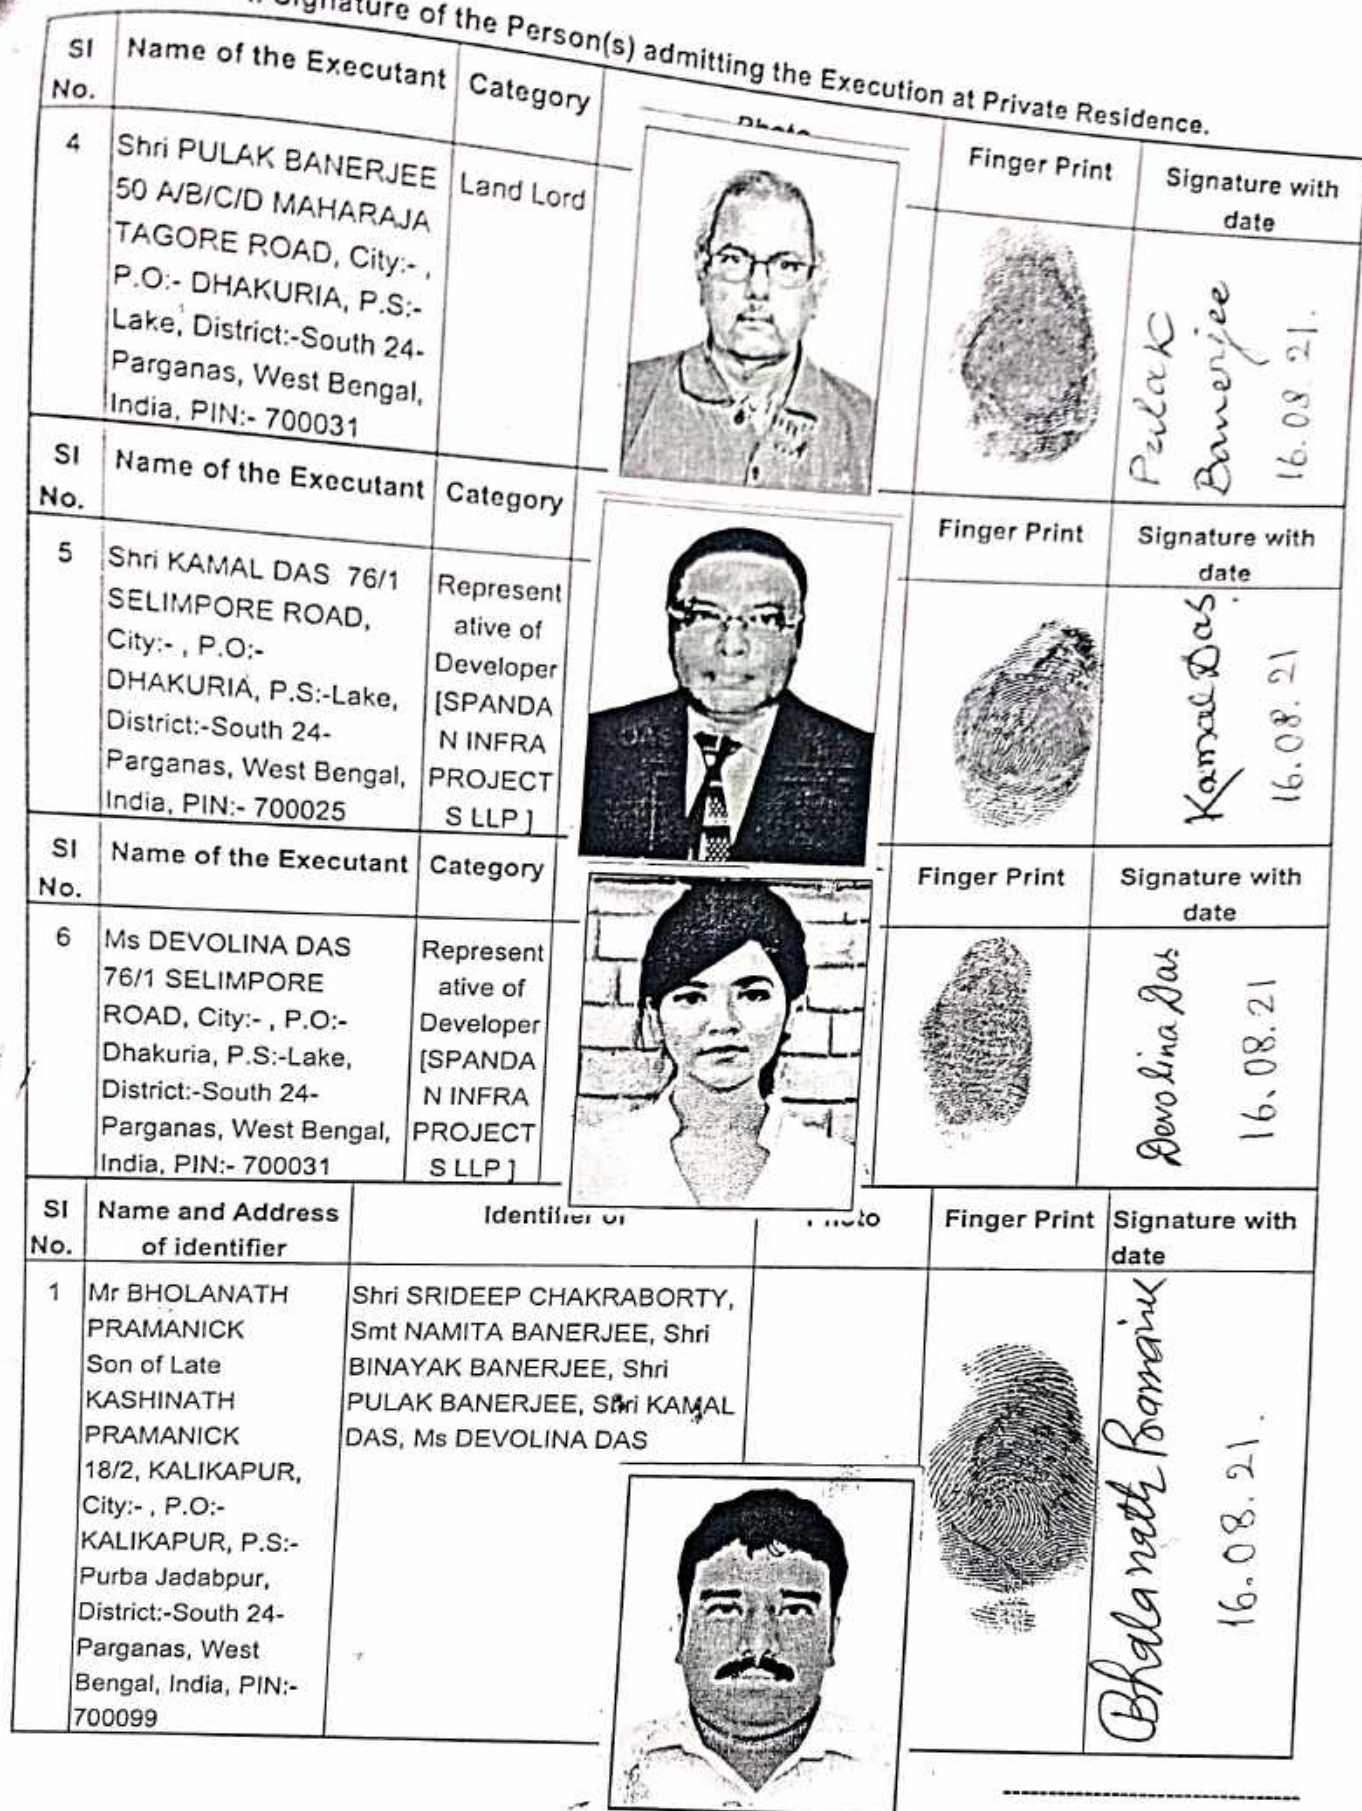 Signature of the Person(s) admitting the Execution at Private Residence.
Sl No. Name of the Executant Category Photo Finger Print Signature with date
4 Shri PULAK BANERJEE Land Lord
50 A/B/C/D MAHARAJA
TAGORE ROAD, City:- ,
P.O:- DHAKURIA, P.S:-
Lake, District:-South 24-
Parganas, West Bengal,
India, PIN:- 700031
Pulak
Banerjee
16.08.21.
Sl No. Name of the Executant Category Finger Print Signature with date
5 Shri KAMAL DAS 76/1
SELIMPORE ROAD,
City:- , P.O:-
DHAKURIA, P.S:-Lake,
District:-South 24-
Parganas, West Bengal,
India, PIN:- 700025
Represent
ative of
Developer
[SPANDA
N INFRA
PROJECT
S LLP ]
Kamal Das
16.08.21
Sl No. Name of the Executant Category Finger Print Signature with date
6 Ms DEVOLINA DAS
76/1 SELIMPORE
ROAD, City:- , P.O:-
Dhakuria, P.S:-Lake,
District:-South 24-
Parganas, West Bengal,
India, PIN:- 700031
Represent
ative of
Developer
[SPANDA
N INFRA
PROJECT
S LLP ]
Devolina Das
16.08.21
Sl No. Name and Address of identifier Identifier of Photo Finger Print Signature with date
1 Mr BHOLANATH
PRAMANICK
Son of Late
KASHINATH
PRAMANICK
18/2, KALIKAPUR,
City:- , P.O:-
KALIKAPUR, P.S:-
Purba Jadabpur,
District:-South 24-
Parganas, West
Bengal, India, PIN:-
700099
Shri SRIDEEP CHAKRABORTY,
Smt NAMITA BANERJEE, Shri
BINAYAK BANERJEE, Shri
PULAK BANERJEE, Shri KAMAL
DAS, Ms DEVOLINA DAS
16.08.21.